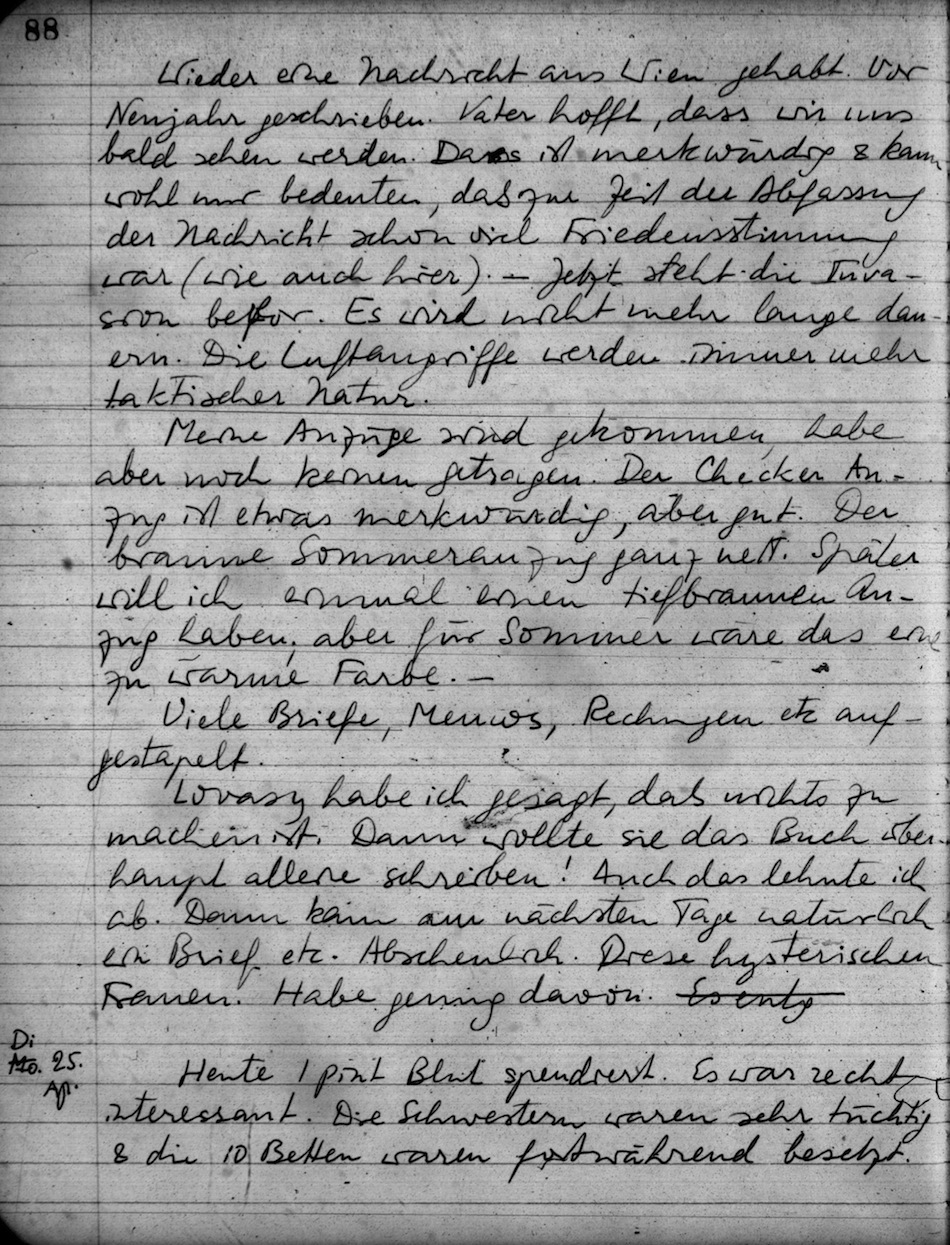 88
Wieder eine Nachricht aus Wien gehabt. Vor
Neujahr geschrieben. Vater hofft, dass wir uns
bald sehen werden. Das ist merkwürdig & kann
wohl nur bedeuten, daß zur Zeit der Abfassung
der Nachricht schon viel Friedensstimmung
war (wie auch hier). – Jetzt steht die Inva-
sion bevor. Es wird nicht mehr lange dau-
ern. Die Luftangriffe werden immer mehr
taktischer Natur.
Meine Anzüge sind gekommen, habe
aber noch keinen getragen. Der Checker An-
zug ist etwas merkwürdig, aber gut. Der
braune Sommeranzug ganz nett. Später
will ich einmal einen tiefbraunen An-
zug haben, aber für Sommer wäre das eine
zu warme Farbe. –
Viele Briefe, Memos, Rechnungen etc auf-
gestapelt.
Lovasy habe ich gesagt, daß nichts zu
machen ist. Dann wollte sie das Buch über-
haupt alleine schreiben! Auch das lehnte ich
ab. Dann kam am nächsten Tage natürlich
ein Brief etc. Abscheulich. Diese hysterischen
Frauen. Habe genug davon.
Di
Mo. 25.
Ap.
Heute 1 pint Blut spendiert. Es war recht
interessant. Die Schwestern waren sehr tüchtig
& die 10 Betten waren fortwährend besetzt.